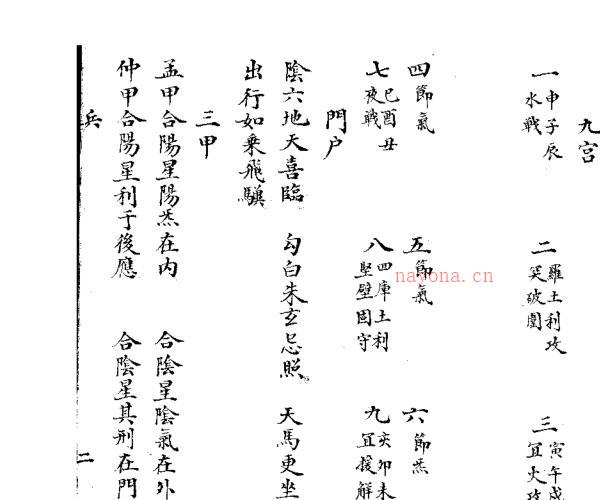 九宮
一 申子辰水戰
二 羅土利攻突破圍
三 寅午戌宜火攻
四節氣
五節氣
六節炁
七 巳酉丑夜戰
八 四庫土利堅壁固守
九 亥卯未宜援解
門户
陰六地天喜臨 勾白朱玄忌照 天馬更坐
出行如乘飛騏
三甲
孟甲合陽星陽炁在内 合陰星陰氣在外
仲甲合陽星利于後應 合陰星其刑在門
兵
二
nayona.cn